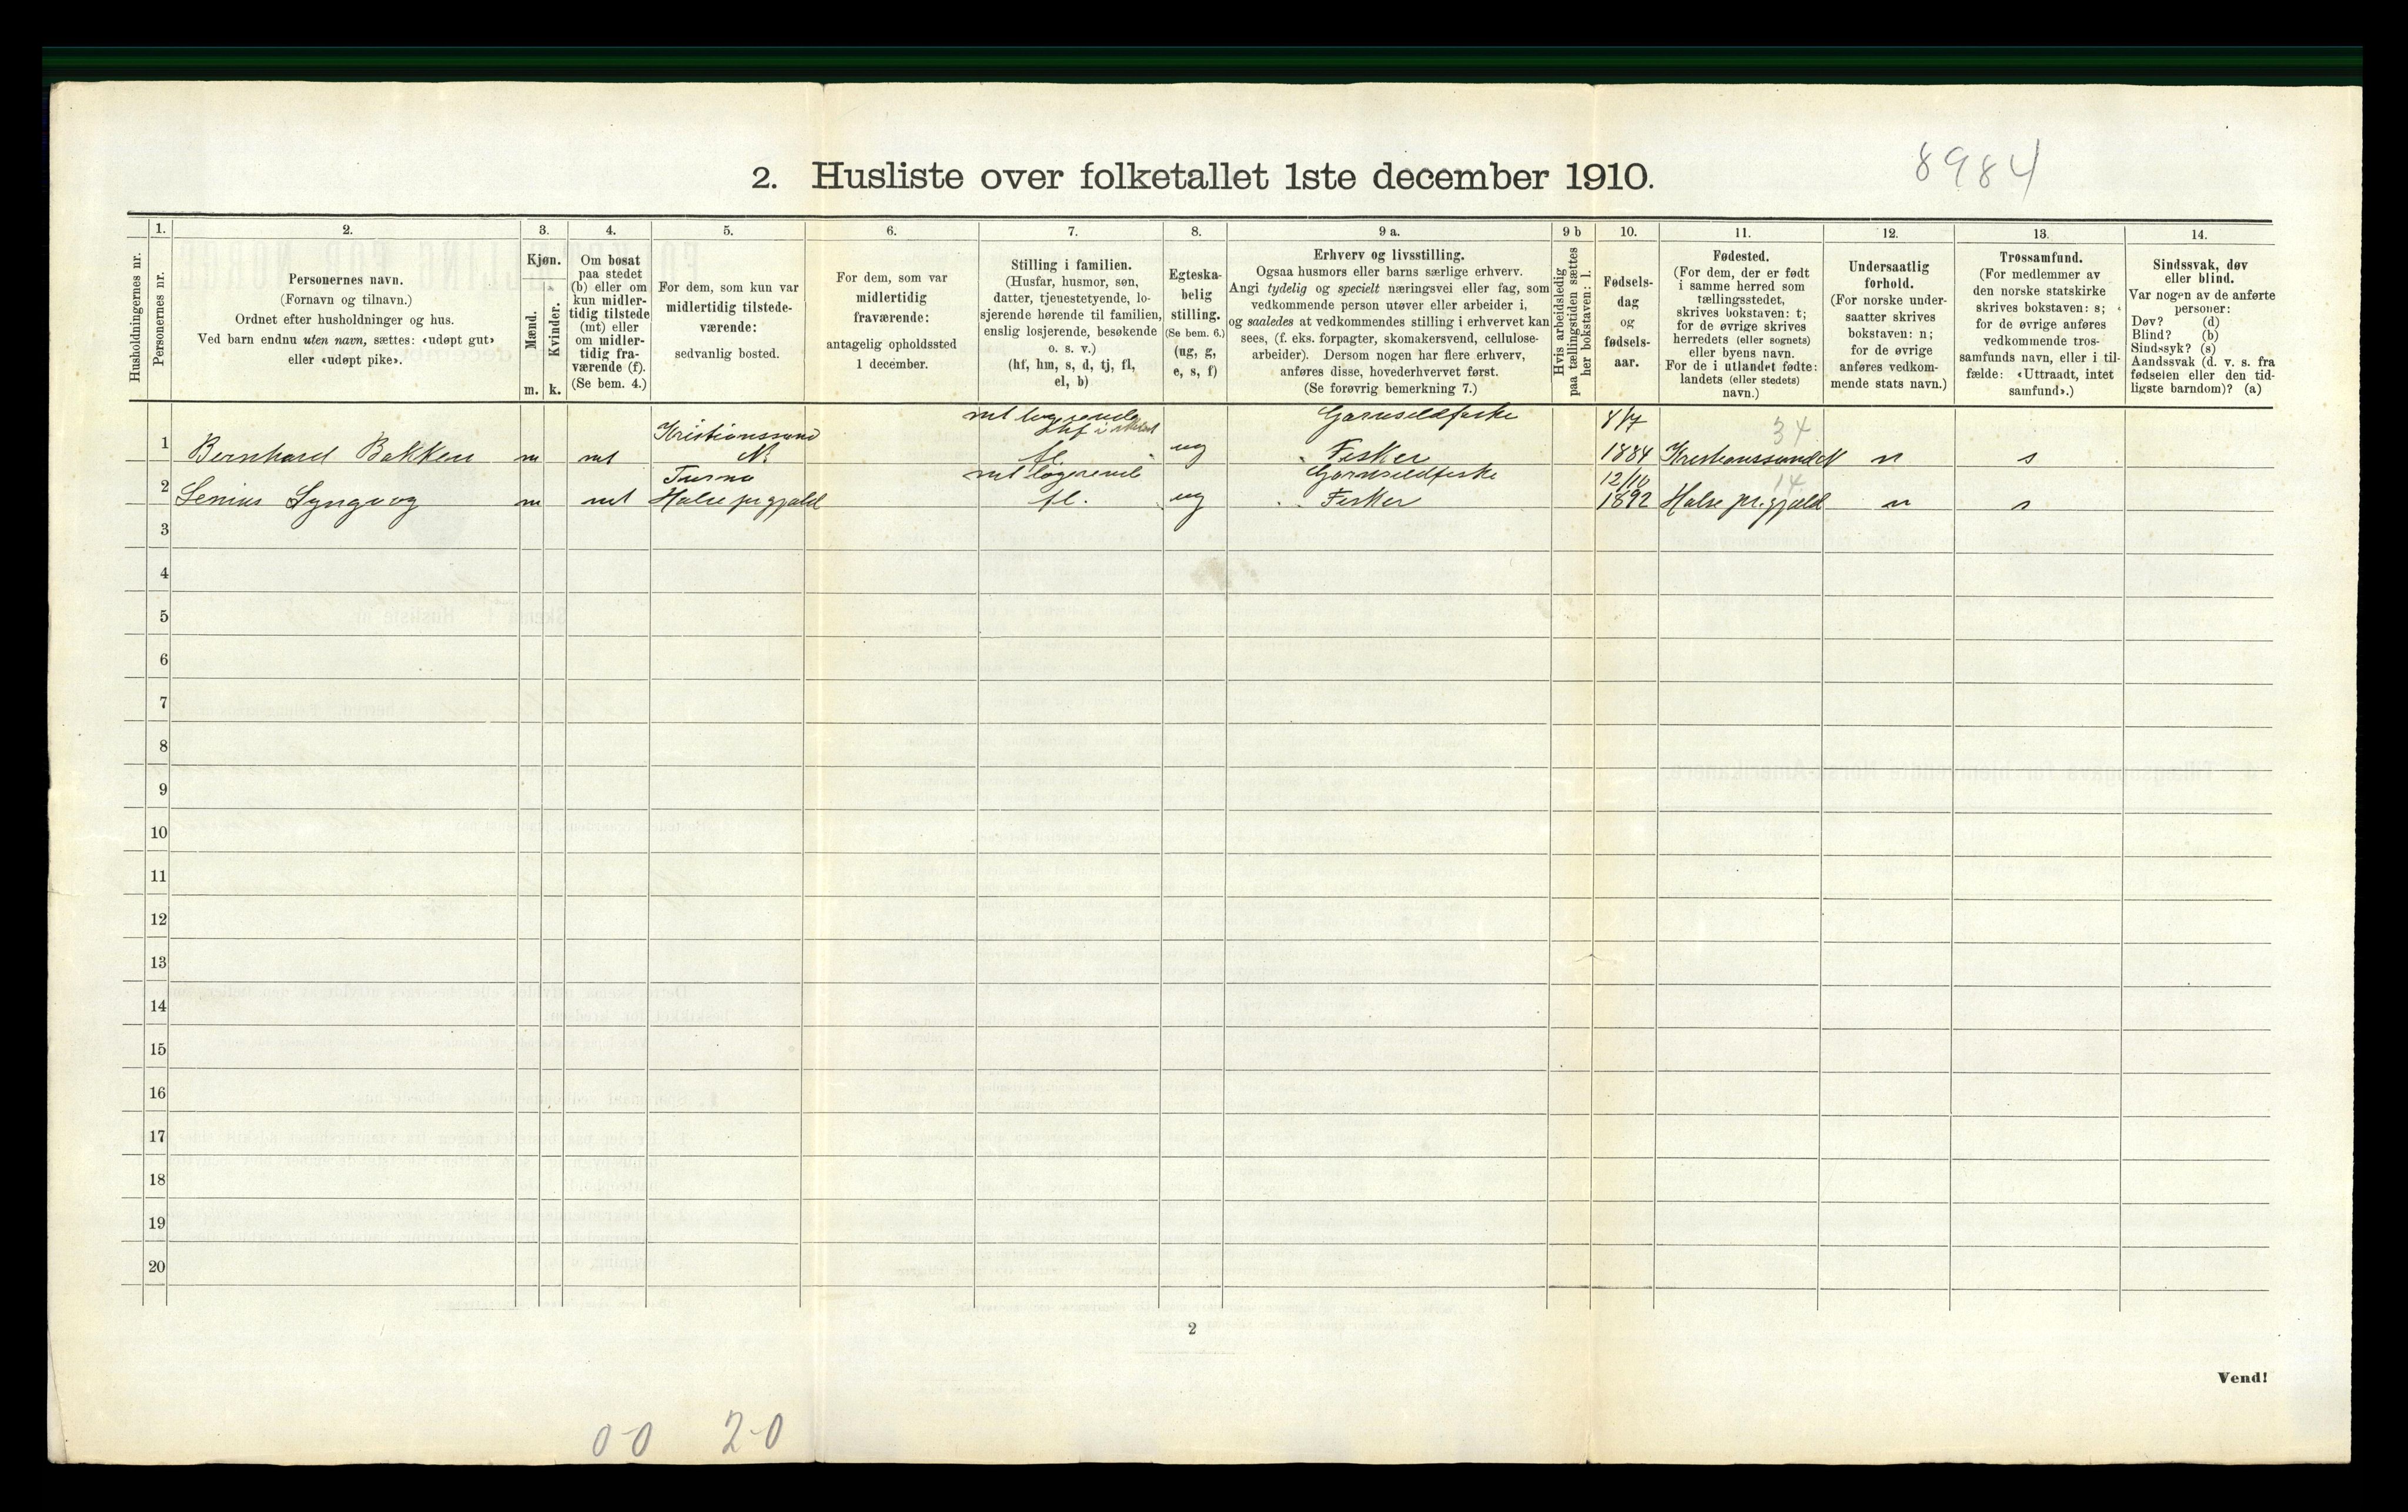 8984
2. Husliste over folketallet 1ste december 1910.
Husholdningernes nr.
1.
Personernes nr.
2.
Personernes navn.
(Fornavn og tilnavn.)
Ordnet efter husholdninger og hus.
Ved barn endnu uten navn, sættes: «udøpt gut»
eller «udøpt pike».
3.
Kjøn.
Mænd.
Kvinder.
m. k.
4.
Om bosat
paa stedet
(b) eller om
kun midler-
tidig tilstede
(mt) eller
om midler-
tidig fra-
værende (f).
(Se bem. 4.)
5.
For dem, som kun var
midlertidig tilstede-
værende:
sedvanlig bosted.
6.
For dem, som var
midlertidig
fraværende:
antagelig opholdssted
1 december.
7.
Stilling i familien.
(Husfar, husmor, søn,
datter, tjenestetyende, lo-
sjerende hørende til familien,
enslig losjerende, besøkende
o. s. v.)
(hf, hm, s, d, tj, fl,
el, b)
8.
Egteska-
belig
stilling.
(Se bem. 6.)
(ug, g,
e, s, f)
9 a.
Erhverv og livsstilling.
Ogsaa husmors eller barns særlige erhverv.
Angi tydelig og specielt næringsvei eller fag, som
vedkommende person utøver eller arbeider i,
og saaledes at vedkommendes stilling i erhvervet kan
sees, (f. eks. forpagter, skomakersvend, cellulose-
arbeider). Dersom nogen har flere erhverv,
anføres disse, hovederhvervet først.
(Se forøvrig bemerkning 7.)
9 b
Hvis arbeidsledig
paa tællingstiden sættes
her bokstaven: l.
10.
Fødsels-
dag
og
fødsels-
aar.
11.
Fødested.
(For dem, der er født
i samme herred som
tællingsstedet,
skrives bokstaven: t;
for de øvrige skrives
herredets (eller sognets)
eller byens navn.
For de i utlandet fødte:
landets (eller stedets)
navn.)
12.
Undersaatlig
forhold.
(For norske under-
saatter skrives
bokstaven: n;
for de øvrige
anføres vedkom-
mende stats navn.)
13.
Trossamfund.
(For medlemmer av
den norske statskirke
skrives bokstaven: s;
for de øvrige anføres
vedkommende tros-
samfunds navn, eller i til-
fælde: «Uttraadt, intet
samfund».)
14.
Sindssvak, døv
eller blind.
Var nogen av de anførte
personer:
Døv? (d)
Blind? (b)
Sindssyk? (s)
Aandssvak (d. v. s. fra
fødselen eller den tid-
ligste barndom)? (a)
mt logerende Garnseldfiske 34
Kristianssund
1 Bernhard Bakken m mt N. fl. ug Fisker 1884 Kristianssund N n s
mt logerende Garnseldfiske 12/10 14
2 m mt Halse pr.gjæld fl. ug Fisker 1892 Halse pr.gjæld n s
3
4
5
6
7
8
9
10
11
12
13
14
15
16
17
18
19
20
2
Vend!
0-0 2-0